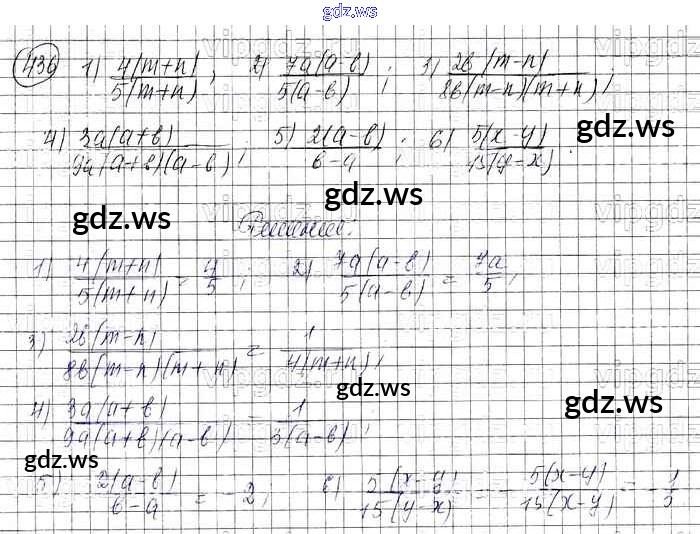 gdz.ws
436 1) 4(m+n)/5(m+n); 2) 7a(a-b)/5(a-b); 3) 2b(m-n)/8b(m-n)(m+n);
gdz.ws
4) 3a(a+b)/9a(a+b)(a-b); 5) 2(a-b)/b-a; 6) 5(x-y)/15(y-x)
gdz.ws gdz.ws
Решение:
1) 4(m+n)/5(m+n) = 4/5; 2) 7a(a-b)/5(a-b) = 7a/5;
3) 2b(m-n)/8b(m-n)(m+n) = 1/4(m+n);
gdz.ws gdz.ws
4) 3a(a+b)/9a(a+b)(a-b) = 1/3(a-b);
gdz.ws
5) 2(a-b)/b-a = -2; 6) 5(x-y)/15(y-x) = -5(x-y)/15(x-y) = -1/3